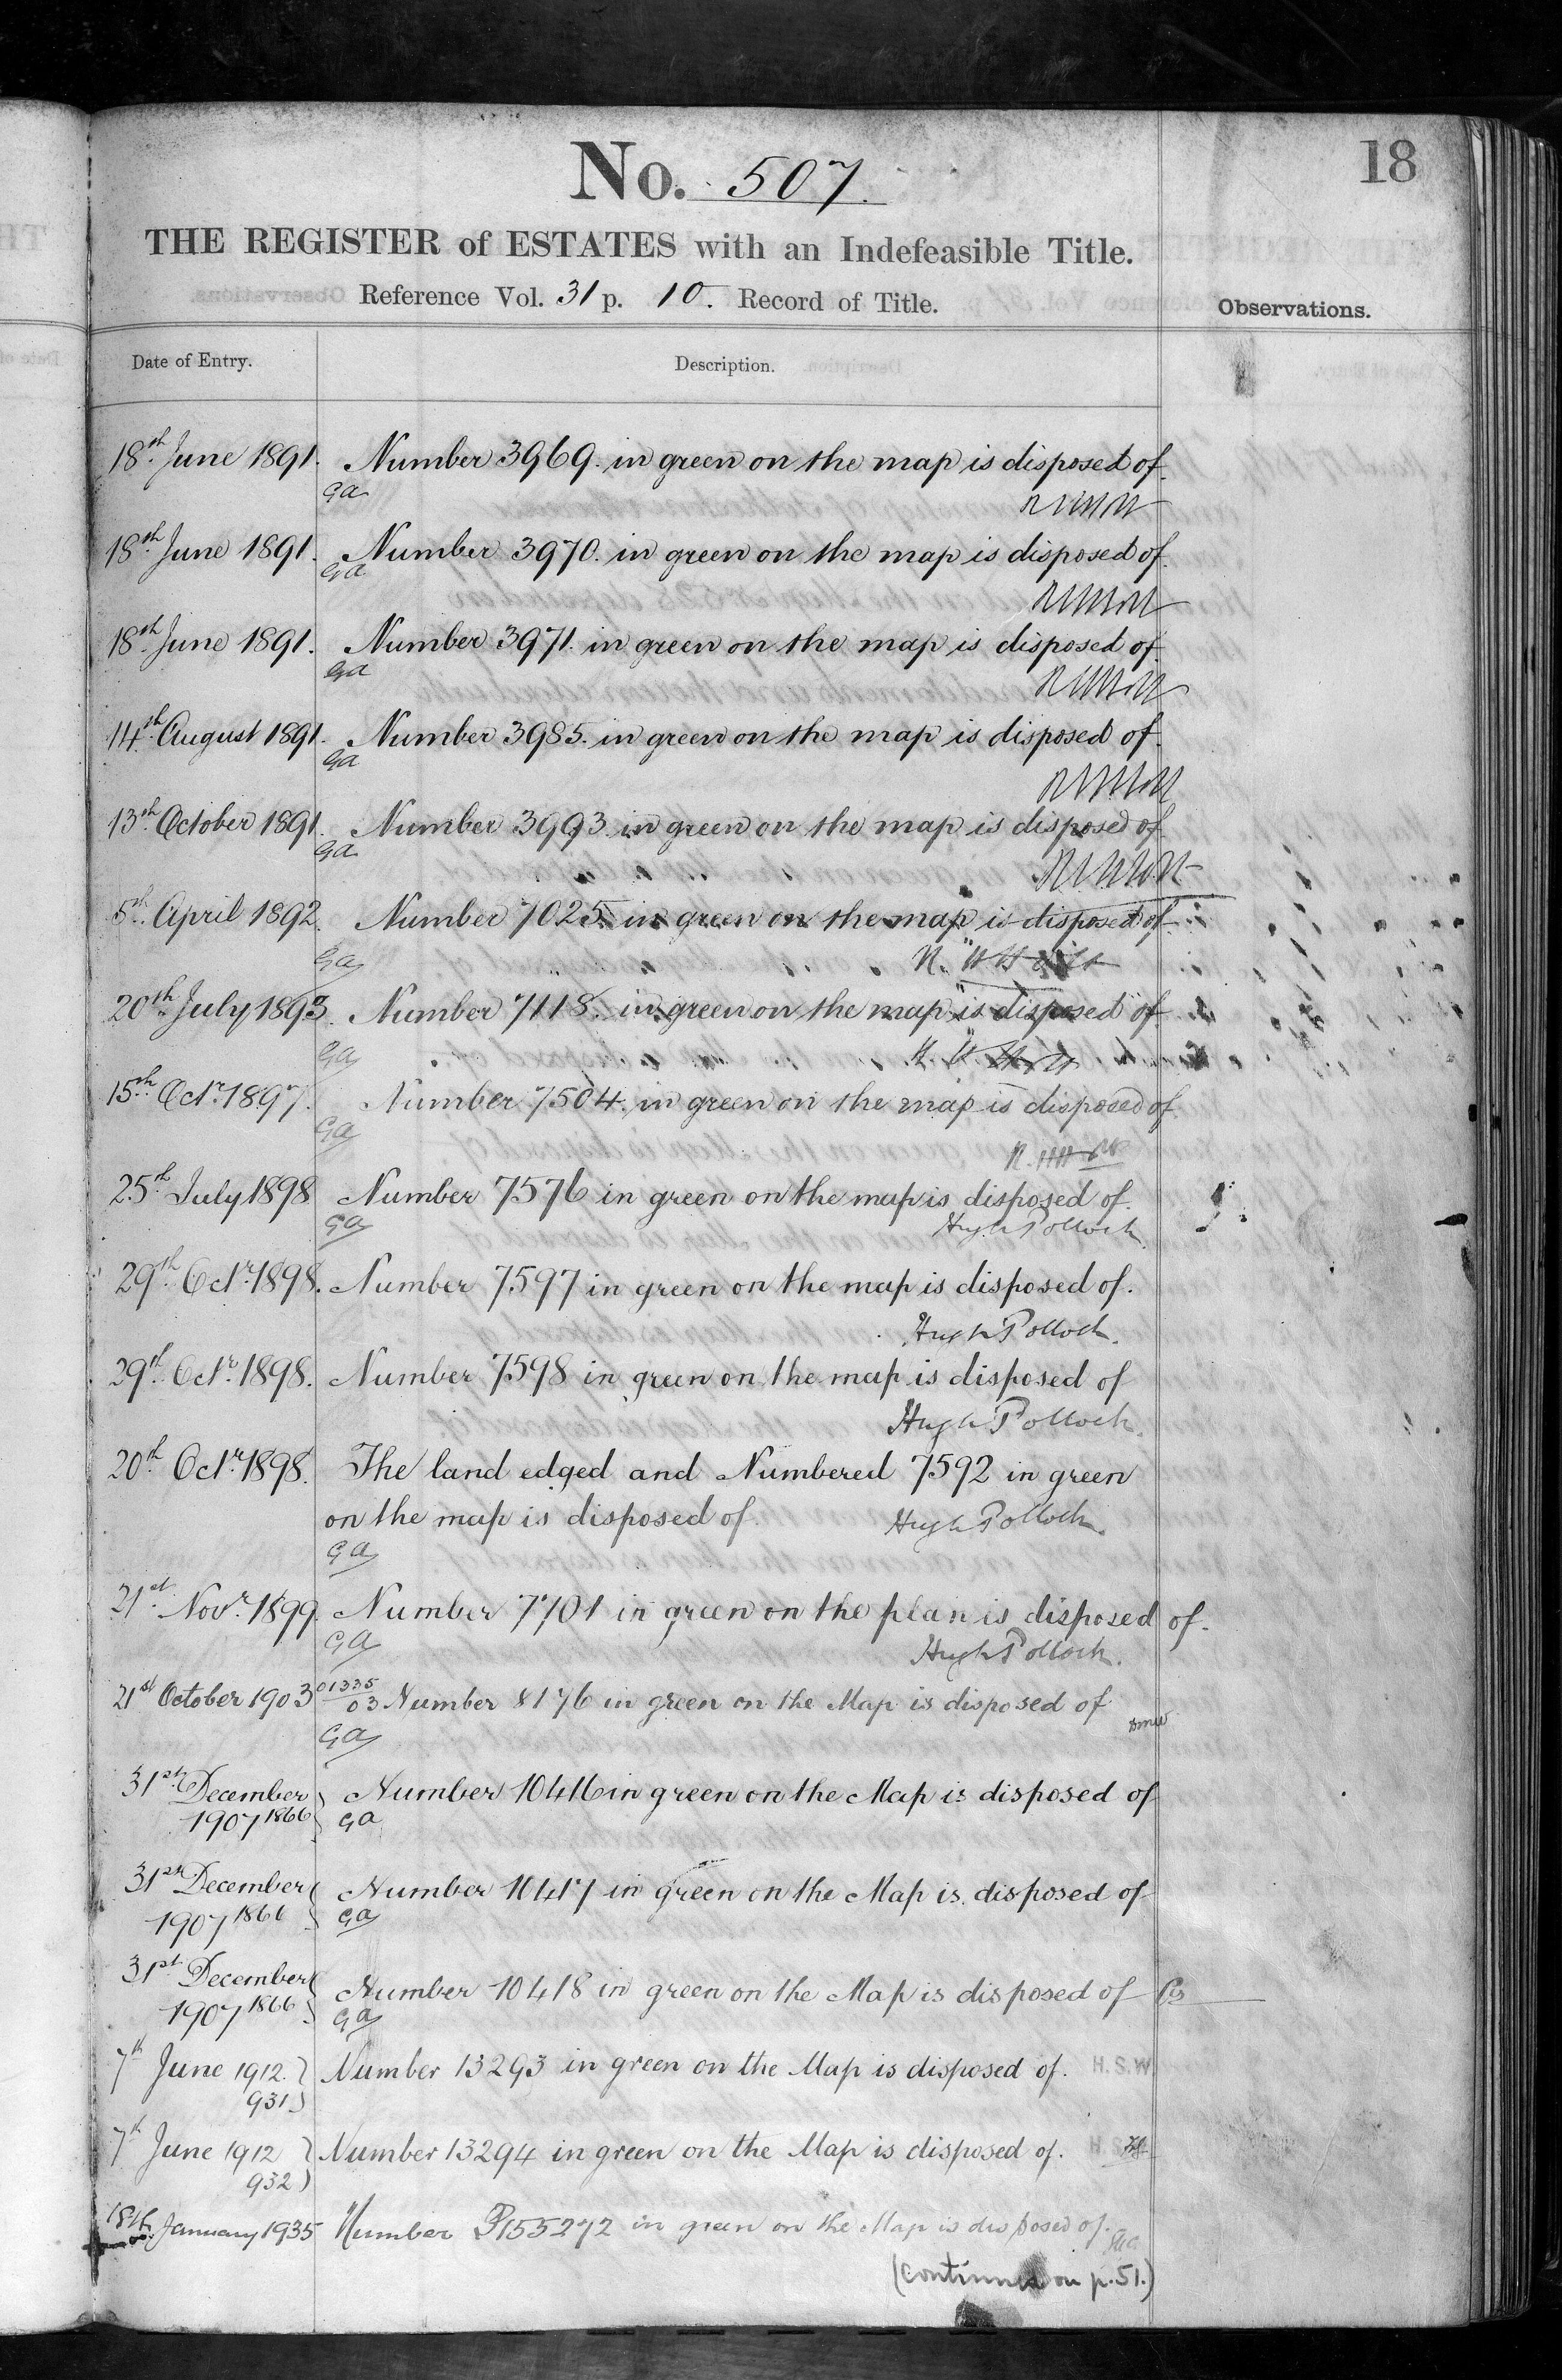 18
No. 507.
THE REGISTER of ESTATES with an Indefeasible Title.
Reference Vol. 31 p. 10. Record of Title.
Observations.
Date of Entry. Description.
18th June 1891. Number 3969. in green on the map is disposed of.
GA
18th June 1891. Number 3970. in green on the map is disposed of.
GA
18th June 1891. Number 3971. in green on the map is disposed of.
GA
14th August 1891. Number 3985. in green on the map is disposed of.
GA
13th October 1891. Number 3993. in green on the map is disposed of
GA
5th April 1892. Number 7025. in green on the map is disposed of
GA
20th July 1893. Number 7118. in green on the map is disposed of
GA
15th Octr. 1897. Number 7504. in green on the map is disposed of
GA
25th July 1898 Number 7576 in green on the map is disposed of.
GA Hugh Pollock.
29th Octr. 1898. Number 7597 in green on the map is disposed of.
Hugh Pollock.
29th Octr. 1898. Number 7598 in green on the map is disposed of
Hugh Pollock.
20th Octr. 1898. The land edged and Numbered 7592 in green
on the map is disposed of. Hugh Pollock.
GA
21st Novr. 1899. Number 7701 in green on the plan is disposed of.
GA Hugh Pollock.
21st October 1903 01335
03 Number 8176 in green on the Map is disposed of
GA
31st December Number 10416 in green on the Map is disposed of
1907 1866 GA
31st December Number 10417 in green on the Map is disposed of
1907 1866 GA
31st December Number 10418 in green on the Map is disposed of
1907 1866 GA
7th June 1912. Number 13293 in green on the Map is disposed of. H.S.W
931
7th June 1912 Number 13294 in green on the Map is disposed of.
932
18th January 1935 Number P155272 in green on the Map is disposed of.
(continued on p. 51.)